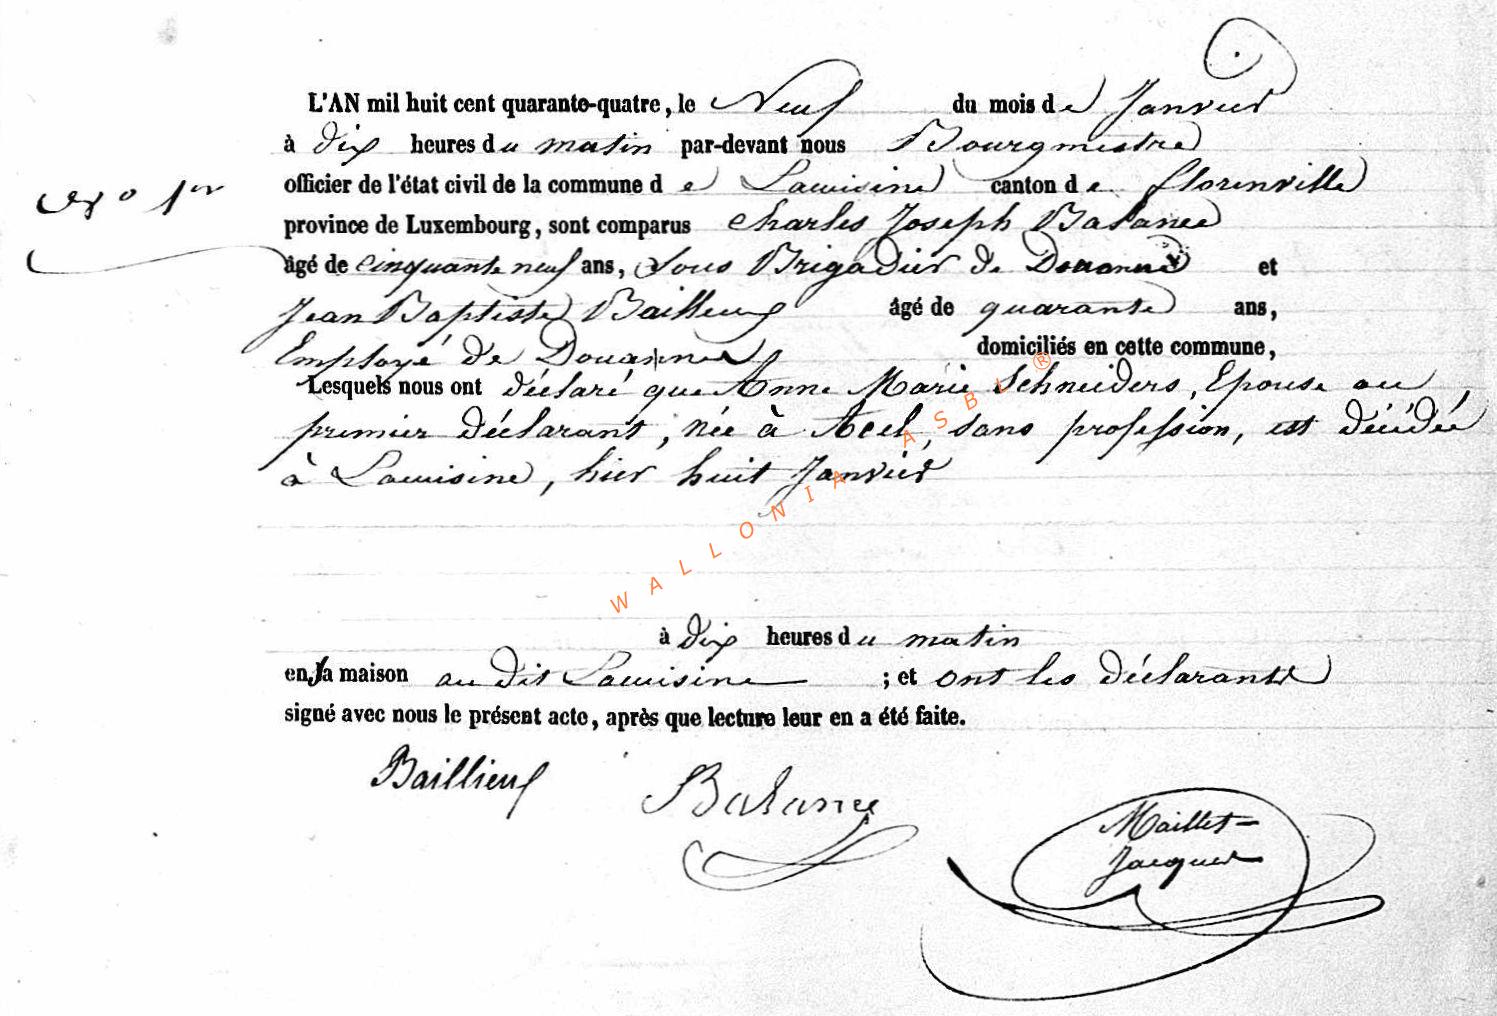 L'AN mil huit cent quarante-quatre, le Neuf du mois de Janvier
à dix heures du matin par-devant nous Bourgmestre
officier de l'état civil de la commune de Lacuisine canton de florenville
N° 1er
province de Luxembourg, sont comparus Charles Joseph Balance
âgé de cinquante neuf ans, Sous Brigadier de Douanne et
Jean Baptiste Baillieux âgé de quarante ans,
Employé de Douanne domiciliés en cette commune,
Lesquels nous ont déclaré que Anne Marie Schneiders, Epouse au
premier déclarant, née à, sans profession, est décédée
à Lacuisine, hier huit Janvier
WALLONIA ASBL ®
à dix heures du matin
en la maison au dit Lacuisine ; et ont les déclarants
signé avec nous le présent acte, après que lecture leur en a été faite.
Baillieux Balance
Maillet-
Jacques